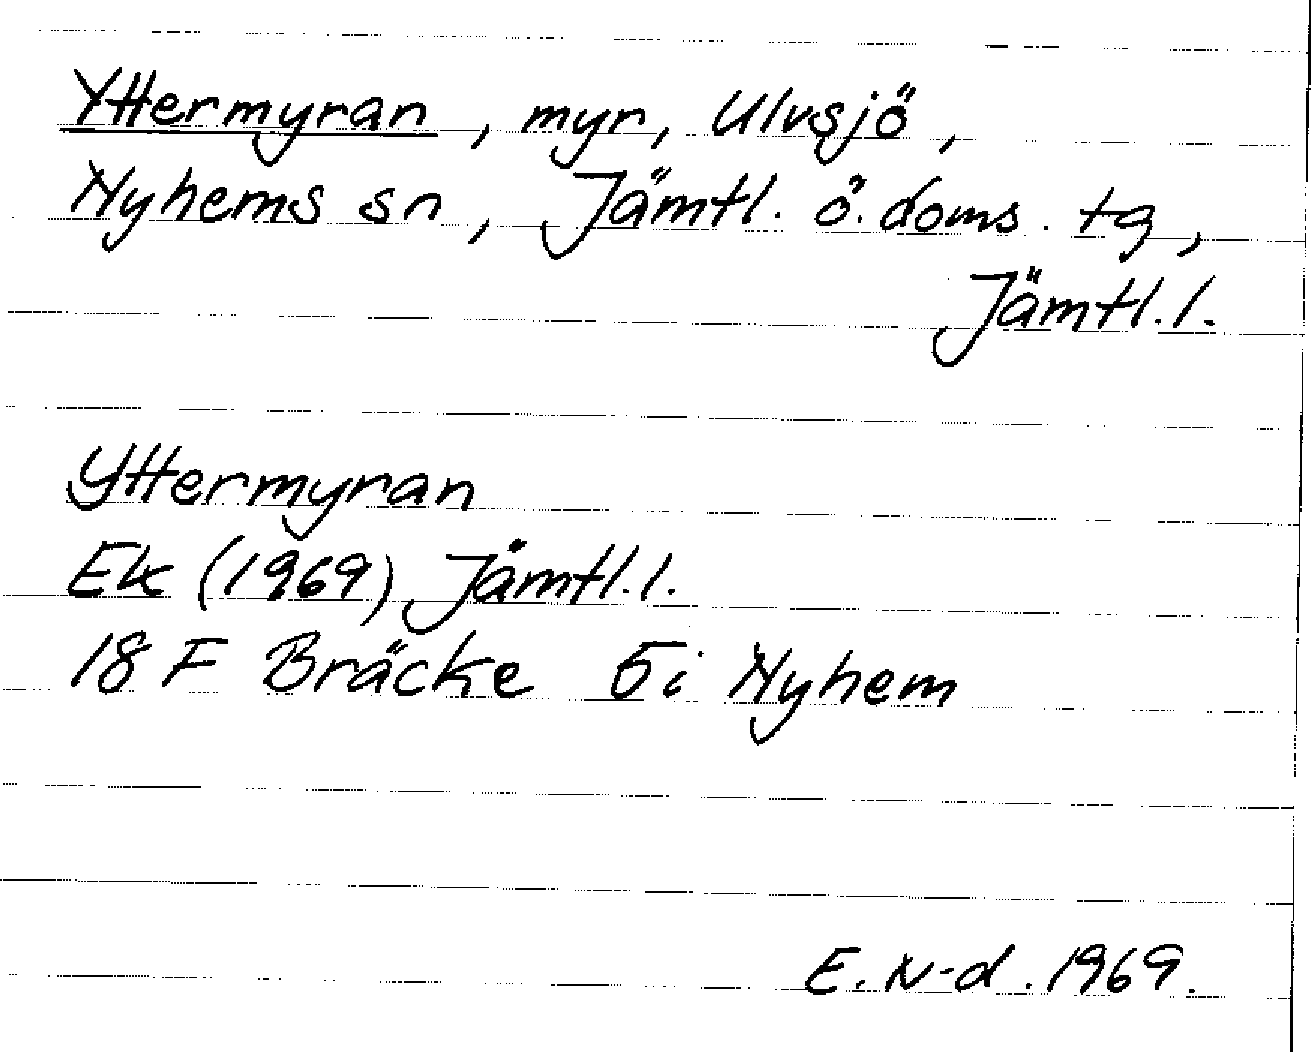 Yttermyran, myr, Ulvsjö,
Nyhems sn, Jämtl. ö. doms. tg,
Jämtl. l.
Yttermyran
Ek (1969) Jämtl. l.
18 F Bräcke 5i Nyhem
E. N-d. 1969.